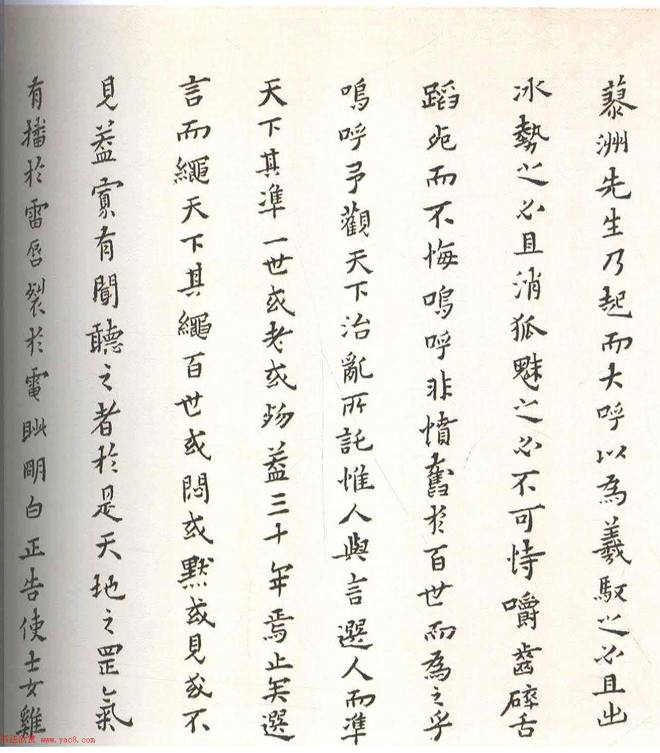 藜洲先生乃起而大呼以為羲馭之必且出
冰勢之必且消狐魅之必不可恃嚼齒碎舌
蹈死而不悔嗚呼非憤奮於百世而為之乎
嗚呼予觀天下治亂所託惟人與言選人而準
天下其準一世或老或殤蓋三十年焉止矣選
言而繩天下其繩百世或悶或默或見或不
見蓋寡有聞聽之者於是天地之罡氣
有播於雷唇裂於電眦明白正告使士女雞
书法欣赏 www.yac8.com